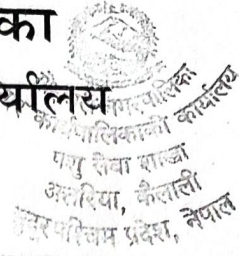 का
र्यालय
नगरपालिका
कार्यपालिकाको कार्यालय
पशु सेवा शाखा
अत्तरिया, कैलाली
सुदूरपश्चिम प्रदेश, नेपाल